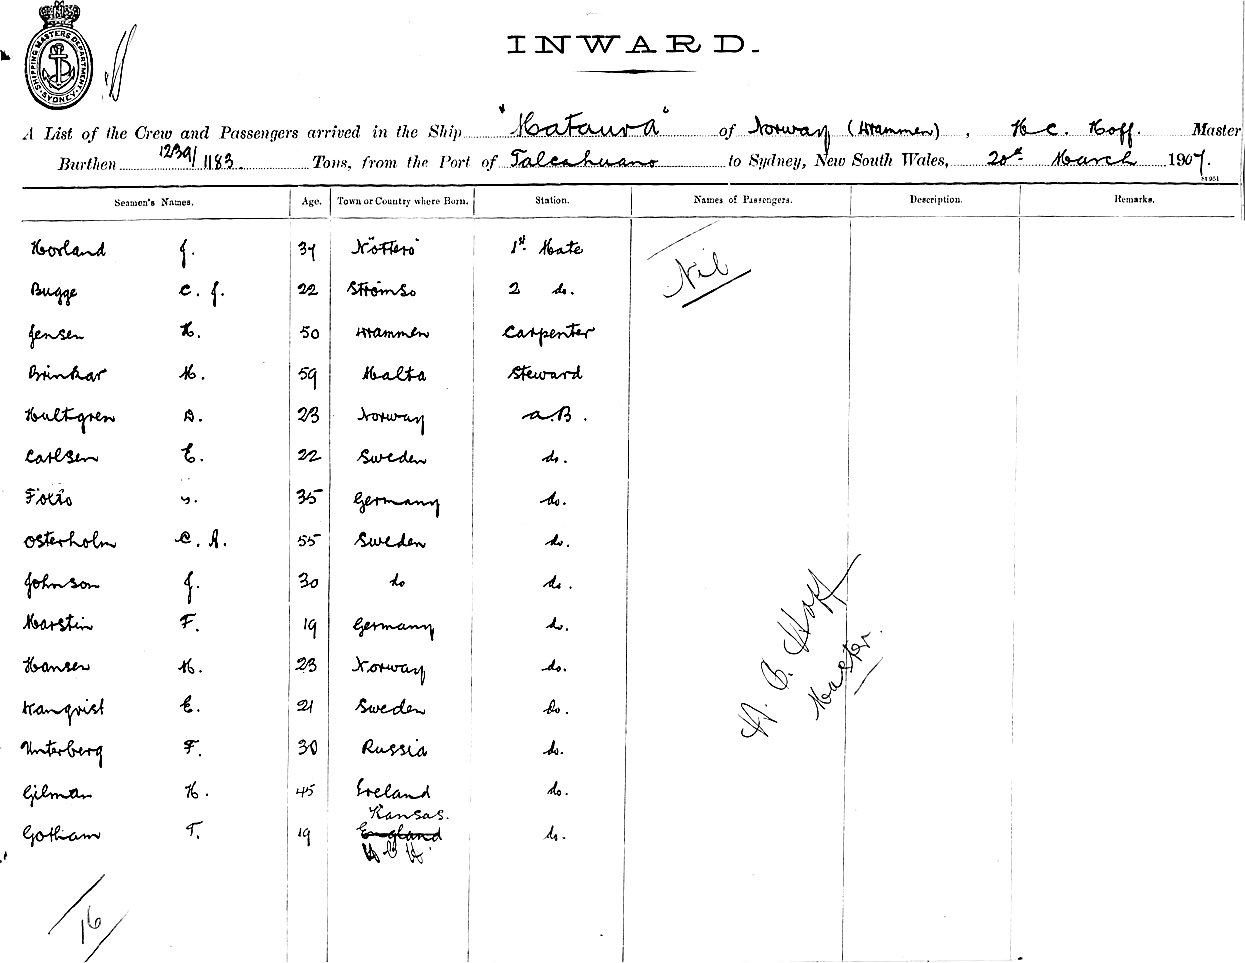 SHIPPING MASTERS DEPARTMENT SYDNEY
INWARD.
A List of the Crew and Passengers arrived in the Ship "Mataura" of Norway (Drammen), H C. Hoff. Master
Burthen 1239/1183 Tons, from the Port of Talcahuano to Sydney, New South Wales, 20th March 1907.
Seamen's Names. Age. Town or Country where Born. Station. Names of Passengers. Description. Remarks.
Horland J. 37 Nöttero 1st Mate
Nil
Bugge C. J. 22 Strömso 2 do.
Jensen H. 50 Drammen Carpenter
Brinkar M. 59 Malta Steward
Hultgren A. 23 Norway AB.
Carlsen E. 22 Sweden do.
35 Germany do.
Osterholm C. A. 55 Sweden do.
Johnson J. 30 do do.
Marstin F. 19 Germany do.
Hansen M. 23 Norway do.
E. 21 Sweden do.
Unterberg F. 30 Russia do.
Gilman H. 45 Ireland do.
Kansas.
Gotham T. 19 England do.
H. C. Hoff
Master.
16